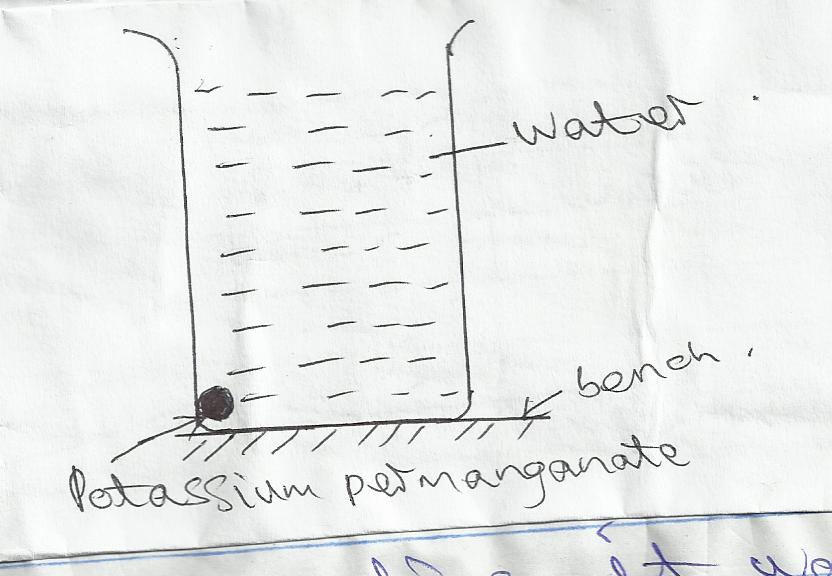 Water
bench.
Potassium permanganate